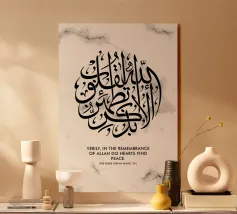 ألا بذكر الله تطمئن القلوب
VERILY, IN THE REMEMBRANCE
OF ALLAH DO HEARTS FIND
PEACE.